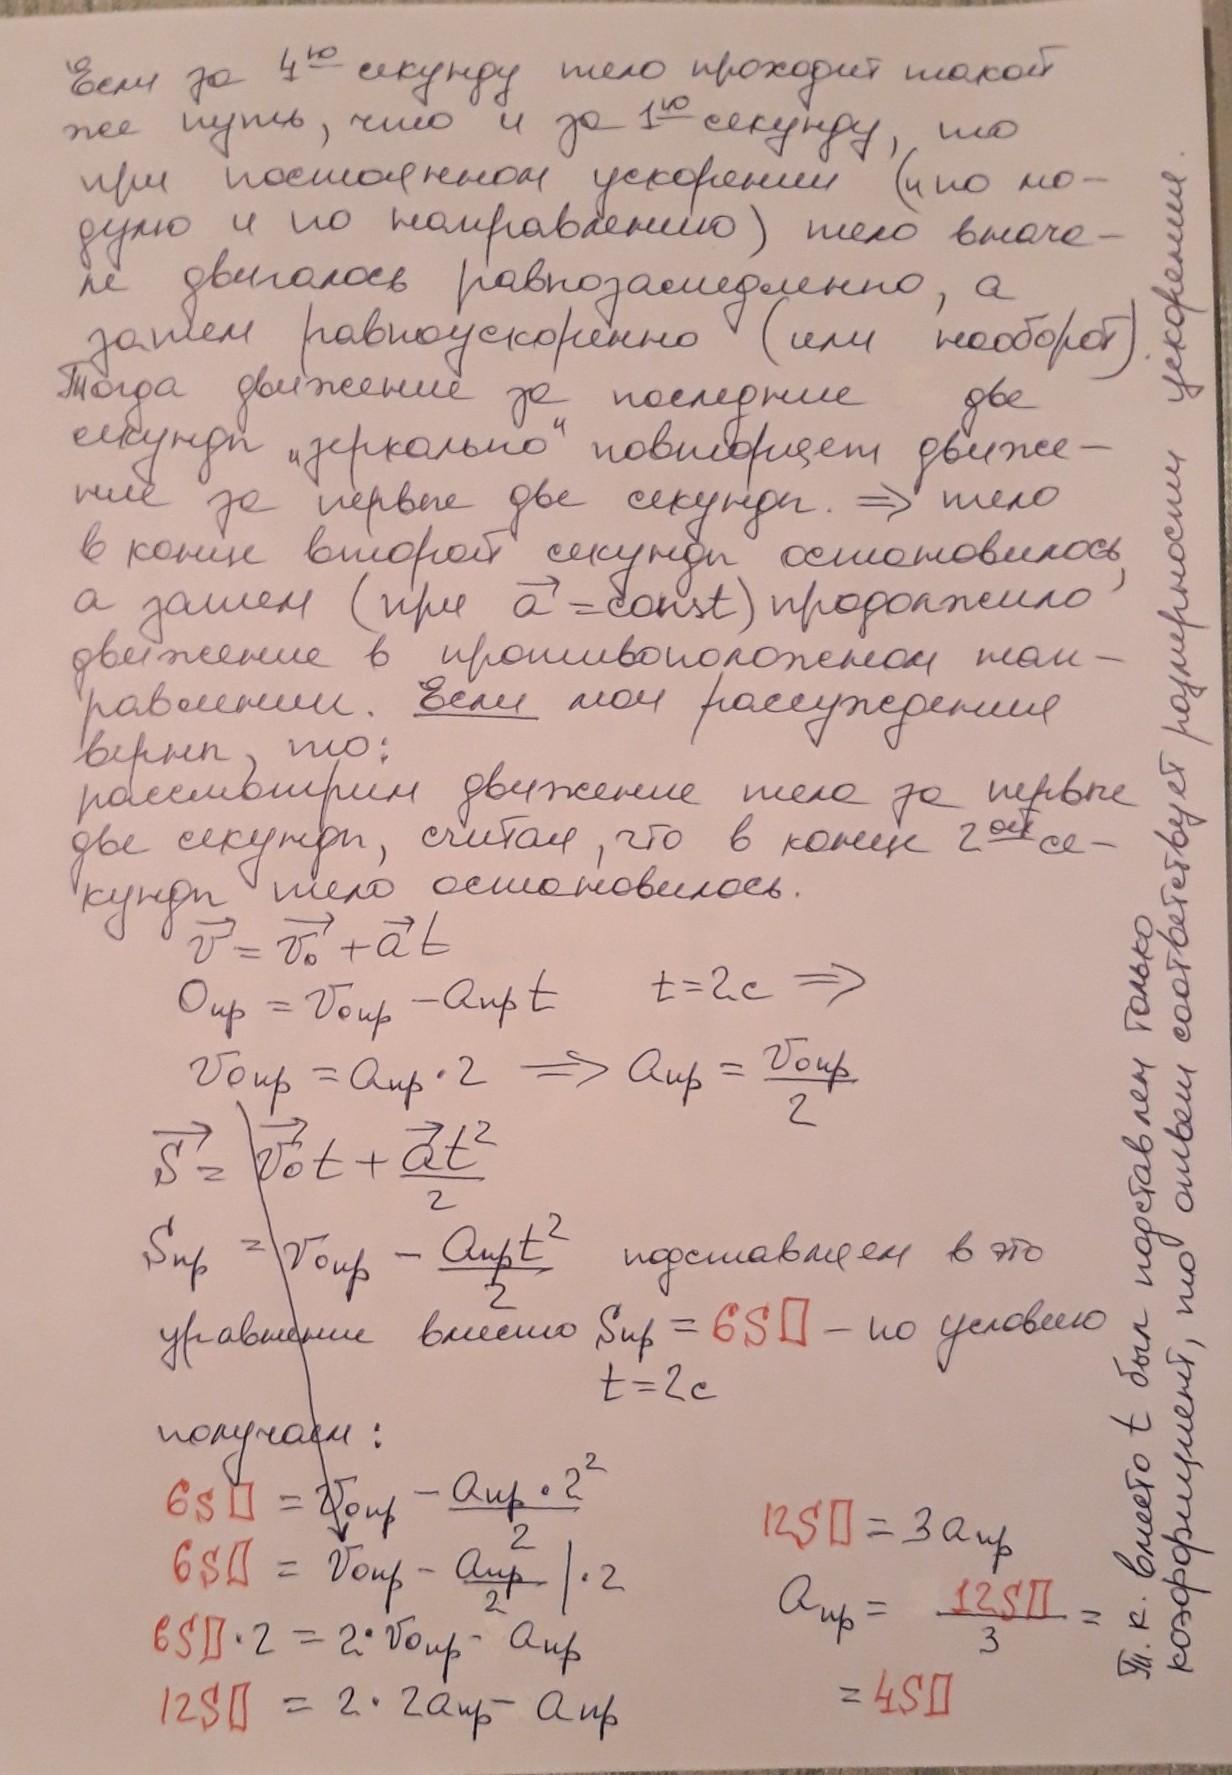 Если за 4ю секунду тело проходит такой
же путь, что и за 1ю секунду, то
при постоянном ускорении (и по мо-
дулю и по направлению) тело внача-
ле двигалось равнозамедленно, а
затем равноускоренно (или наоборот).
Тогда движение за последние две
секунды „зеркально“ повторяет движе-
ние за первые две секунды. ⇒ тело
в конце второй секунды остановилось,
а затем (при a⃗ = const) продолжило
движение в противоположном нап-
равлении. Если мои рассуждения
верны, то:
рассмотрим движение тела за первые
две секунды, считая, что в конце 2ой се-
кунды тело остановилось.
v⃗ = v⃗₀ + a⃗t
0пр = v₀пр − aпрt t=2с ⇒
v₀пр = aпр · 2 ⇒ aпр = v₀пр/2
S⃗ = v⃗₀t + a⃗t²/2
Sпр = v₀пр − aпрt²/2 подставляем в это
уравнение вместо Sпр = 6S▯ – по условию
t=2с
получаем:
6S▯ = v₀пр − aпр·2²/2
6S▯ = v₀пр − aпр/2 |·2
6S▯·2 = 2·v₀пр − aпр
12S▯ = 2·2aпр − aпр
12S▯ = 3aпр
aпр = 12S▯/3 =
= 4S▯
Т.к. вместо t был подставлен только
коэффициент, то ответ соответствует размерности ускорения.